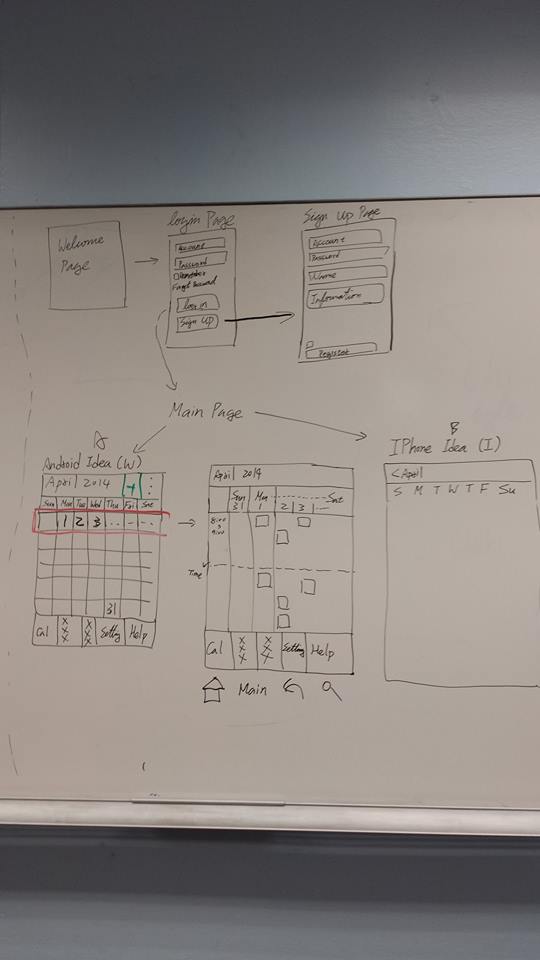 Welcome
Page
login Page
Account
Password
Remember
Forget Password
log in
Sign UP
Sign Up Page
Account
Password
Name
Information
Register
Main Page
A
Android Idea (W)
April 2014 + :
Sun Mon Tue Wed Thu Fri Sat
1 2 3 ... - -
31
Cal XXX XXX Setting Help
April 2014
Sun Mon ------- Sat
31 1 2 3 ...
8:00
9:00
Time
Cal XXX XXX Setting Help
Main
B
IPhone Idea (I)
< April
S M T W T F Su